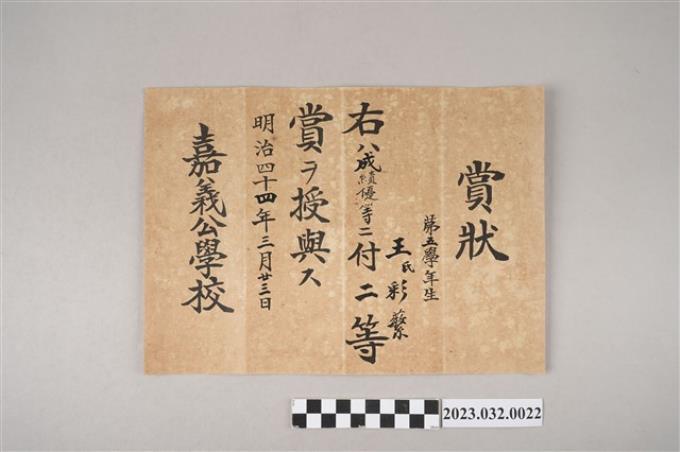 賞狀
第五學年生
王氏彩蘩
右ハ成績優等ニ付二等
賞ヲ授與ス
明治四十四年三月廿三日
嘉義公學校
2023.032.0022